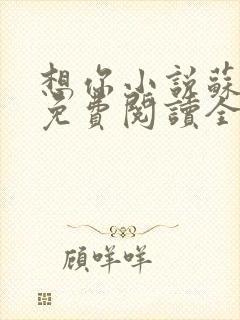 想你小说蘇
免費閱讀全
顧咩咩